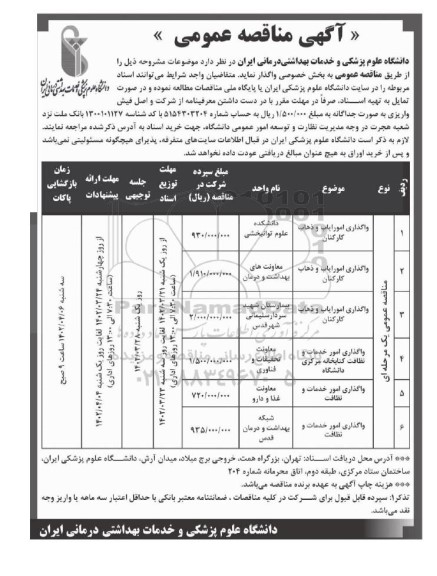 « آگهی مناقصه عمومی »
دانشگاه علوم پزشکی و خدمات بهداشتی‌درمانی ایران در نظر دارد موضوعات مشروحه ذیل را
از طریق مناقصه عمومی به بخش خصوصی واگذار نماید. متقاضیان واجد شرایط می‌توانند اسناد
مربوطه را در سایت دانشگاه علوم پزشکی ایران یا پایگاه ملی مناقصات مطالعه نموده و در صورت
تمایل به تهیه اسناد، صرفاً در مهلت مقرر با در دست داشتن معرفینامه از شرکت و اصل فیش
واریزی به صورت جداگانه به مبلغ ۱/۵۰۰/۰۰۰ ریال به حساب شماره ۵۱۵۴۳۰۳۲۰۴ با کد شناسه ۱۳۰۰۱۰۱۱۲۷ بانک ملت نزد
شعبه هجرت در وجه مدیریت نظارت و توسعه امور عمومی دانشگاه، جهت خرید اسناد به آدرس ذکرشده مراجعه نمایند.
لازم به ذکر است دانشگاه علوم پزشکی ایران در قبال اطلاعات سایت‌های متفرقه، پذیرای هیچگونه مسئولیتی نمی‌باشد
و پس از خرید اوراق به هیچ عنوان مبالغ دریافتی عودت داده نخواهد شد.
ردیف نوع موضوع نام واحد مبلغ سپرده شرکت در مناقصه (ریال) مهلت توزیع اسناد جلسه توجیهی مهلت ارائه پیشنهادات زمان بازگشایی پاکات
مناقصه عمومی یک مرحله ای
۱ واگذاری امور ایاب و ذهاب کارکنان دانشکده علوم توانبخشی ۹۳۰/۰۰۰/۰۰۰
۲ واگذاری امور ایاب و ذهاب کارکنان معاونت های بهداشت و درمان ۱/۹۱۰/۰۰۰/۰۰۰
۳ واگذاری امور ایاب و ذهاب کارکنان بیمارستان شهید سردارسلیمانی شهرقدس ۲/۰۰۰/۰۰۰/۰۰۰
۴ واگذاری امور خدمات و نظافت کتابخانه مرکزی دانشگاه معاونت تحقیقات و فناوری ۱/۵۰۰/۰۰۰/۰۰۰
۵ واگذاری امور خدمات و نظافت معاونت غذا و دارو ۷۲۰/۰۰۰/۰۰۰
۶ واگذاری امور خدمات و نظافت شبکه بهداشت و درمان قدس ۹۳۵/۰۰۰/۰۰۰
از روز یکشنبه ۱۴۰۲/۰۳/۲۱ لغایت روز سه شنبه ۱۴۰۲/۰۳/۲۳
(ساعت ۷:۳۰ الی ۱۳:۰۰ روزهای اداری)
روز یک شنبه ۱۴۰۲/۰۳/۲۸
از روز چهارشنبه ۱۴۰۲/۰۳/۲۴ لغایت روز یک شنبه ۱۴۰۲/۰۴/۰۴
(ساعت ۷:۳۰ الی ۱۳:۰۰ روزهای اداری)
سه شنبه ۱۴۰۲/۰۴/۰۶ ساعت ۹ صبح
*** آدرس محل دریافت اسناد: تهران، بزرگراه همت، خروجی برج میلاد، میدان آرش، دانشگاه علوم پزشکی ایران،
ساختمان ستاد مرکزی، طبقه دوم، اتاق محرمانه شماره ۲۰۴
*** هزینه چاپ آگهی به عهده برنده مناقصه می‌باشد.
تذکر۱: سپرده قابل قبول برای شرکت در کلیه مناقصات ، ضمانتنامه معتبر بانکی با حداقل اعتبار سه ماهه یا واریز وجه
نقد می‌باشد.
دانشگاه علوم پزشکی و خدمات بهداشتی درمانی ایران